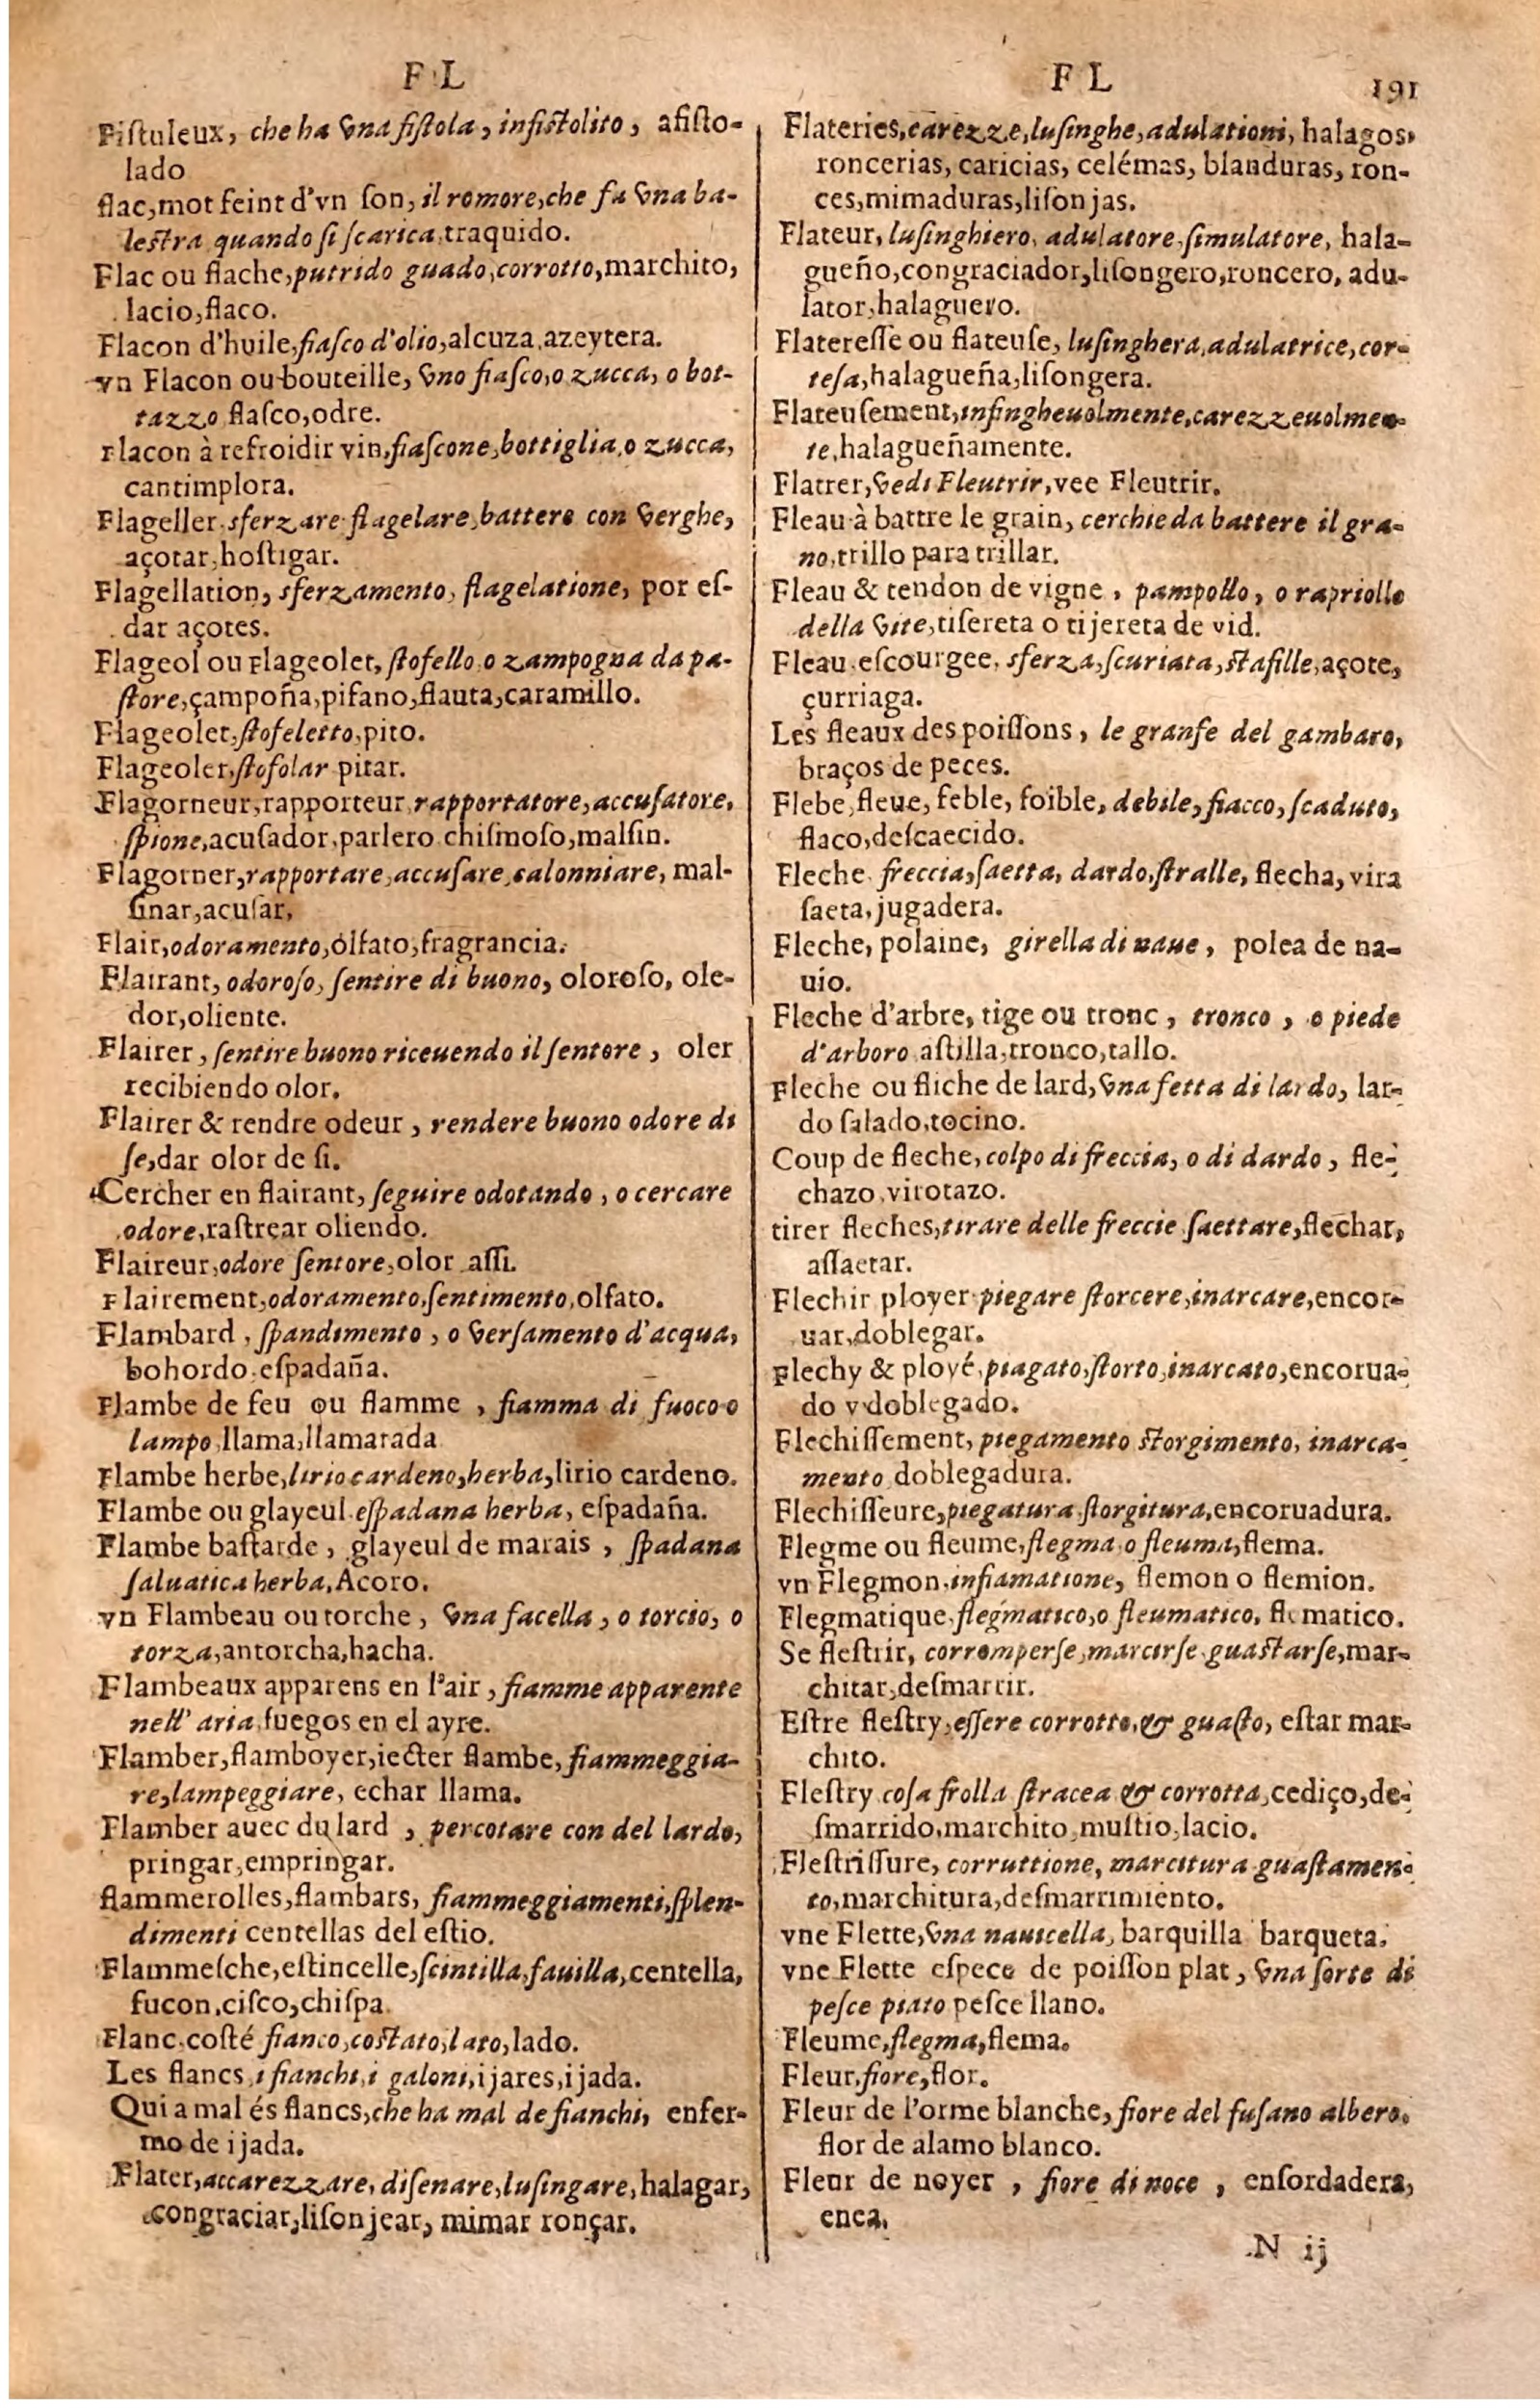 F L
Fiſtuleux, che ha vna fiſtola, infiſtolito, afiſto-
lado
flac, mot feint d'vn ſon, il romore, che fa vna ba-
leſtra quando ſi ſcarica, traquido.
Flac ou flache, putrido guado, corrotto, marchito,
lacio, flaco.
Flacon d'huile, fiaſco d'olio, alcuza, azeytera.
vn Flacon ou bouteille, vno fiaſco, o zucca, o bot-
tazzo flaſco, odre.
Flacon à refroidir vin, fiaſcone, bottiglia, o zucca,
cantimplora.
Flageller, sferzare flagelare, battere con verghe,
açotar, hoſtigar.
Flagellation, sferzamento, flagelatione, por eſ-
dar açotes.
Flageol ou Flageolet, ſtofello o zampogna da pa-
ſtore, çampoña, pifano, flauta, caramillo.
Flageolet, ſtofeletto, pito.
Flageoler, ſtofolar pitar.
Flagorneur, rapporteur, rapportatore, accuſatore,
ſpione, acuſador, parlero chiſmoſo, malſin.
Flagorner, rapportare, accuſare, calonniare, mal-
ſinar, acuſar,
Flair, odoramento, olfato, fragrancia.
Flairant, odoroſo, ſentire di buono, oloroſo, ole-
dor, oliente.
Flairer, ſentire buono riceuendo il ſentore, oler
recibiendo olor.
Flairer & rendre odeur, rendere buono odore di
ſe, dar olor de ſi.
Cercher en flairant, ſeguire odotando, o cercare
odore, raſtrear oliendo.
Flaireur, odore ſentore, olor aſſi.
Flairement, odoramento, ſentimento, olfato.
Flambard, ſpandimento, o verſamento d'acqua,
bohordo, eſpadaña.
Flambe de feu ou flamme, fiamma di fuoco o
lampo, llama, llamarada
Flambe herbe, lirio cardeno, herba, lirio cardeno.
Flambe ou glayeul eſpadana herba, eſpadaña.
Flambe baſtarde, glayeul de marais, ſpadana
ſaluatica herba, Acoro.
vn Flambeau ou torche, vna facella, o torcio, o
torza, antorcha, hacha.
Flambeaux apparens en l'air, fiamme apparente
nell' aria, fuegos en el ayre.
Flamber, flamboyer, iecter flambe, fiammeggia-
re, lampeggiare, echar llama.
Flamber auec du lard, percotare con del lardo,
pringar, empringar.
flammerolles, flambars, fiammeggiamenti, ſplen-
dimenti centellas del eſtio.
Flammeſche, eſtincelle, ſcintilla, fauilla, centella,
fucon, ciſco, chiſpa.
Flanc, coſté fianco, coſtato, lato, lado.
Les flancs, i fianchi, i galoni, ijares, ijada.
Qui a mal és flancs, che ha mal de fianchi, enfer-
mo de ijada.
Flater, accarezzare, diſenare, luſingare, halagar,
congraciar, liſonjear, mimar ronçar.
F L 191
Flateries, carezze, luſinghe, adulationi, halagos,
roncerias, caricias, celémas, blanduras, ron-
ces, mimaduras, liſonjas.
Flateur, luſinghiero, adulatore, ſimulatore, hala-
gueño, congraciador, liſongero, roncero, adu-
lator, halaguero.
Flatereſſe ou flateuſe, luſinghera, adulatrice, cor-
teſa, halagueña, liſongera.
Flateuſement, inſingheuolmente, carezzeuolmen-
te, halagueñamente.
Flatrer, vedi Fleutrir, vee Fleutrir.
Fleau à battre le grain, cerchie da battere il gra-
no, trillo para trillar.
Fleau & tendon de vigne, pampollo, o rapriollo
della vite, tiſereta o tijereta de vid.
Fleau eſcourgee, sferza, ſcuriata, ſtafille, açote,
çurriaga.
Les fleaux des poiſſons, le granfe del gambaro,
braços de peces.
Flebe, fleue, feble, foible, debile, fiacco, ſcaduto,
flaco, deſcaecido.
Fleche freccia, ſaetta, dardo, ſtralle, flecha, vira
ſaeta, jugadera.
Fleche, polaine, girella di naue, polea de na-
uio.
Fleche d'arbre, tige ou tronc, tronco, o piede
d'arboro aſtilla, tronco, tallo.
Fleche ou fliche de lard, vna fetta di lardo, lar-
do ſalado, tocino.
Coup de fleche, colpo di freccia, o di dardo, fle-
chazo, virotazo.
tirer fleches, tirare delle freccie ſaettare, flechar,
aſſaetar.
Flechir ployer piegare ſtorcere, inarcare, encor-
uar, doblegar.
Flechy & ployé, piagato, ſtorto, inarcato, encorua-
do y doblegado.
Flechiſſement, piegamento ſtorgimento, inarca-
mento, doblegadura.
Flechiſſeure, piegatura ſtorgitura, encoruadura.
Flegme ou fleume, flegma o fleuma, flema.
vn Flegmon, infiamatione, flemon o flemion.
Flegmatique, flegmatico, o fleumatico, flematico.
Se fleſtrir, corromperſe, marcirſe guaſtarſe, mar-
chitar, deſmarrir.
Eſtre fleſtry, eſſere corrotto, & guaſto, eſtar mar-
chito.
Fleſtry coſa frolla ſtracea & corrotta, cediço, de-
ſmarrido, marchito, muſtio, lacio.
Fleſtriſſure, corruttione, marcitura guaſtamen-
to, marchitura, deſmarrimiento.
vne Flette, vna nauicella, barquilla barqueta.
vne Flette eſpece de poiſſon plat, vna ſorte di
peſce piato peſce llano.
Fleume, flegma, flema.
Fleur, fiore, flor.
Fleur de l'orme blanche, fiore del fuſano albero.
flor de alamo blanco.
Fleur de noyer, fiore di noce, enſordadera,
enea.
N ij